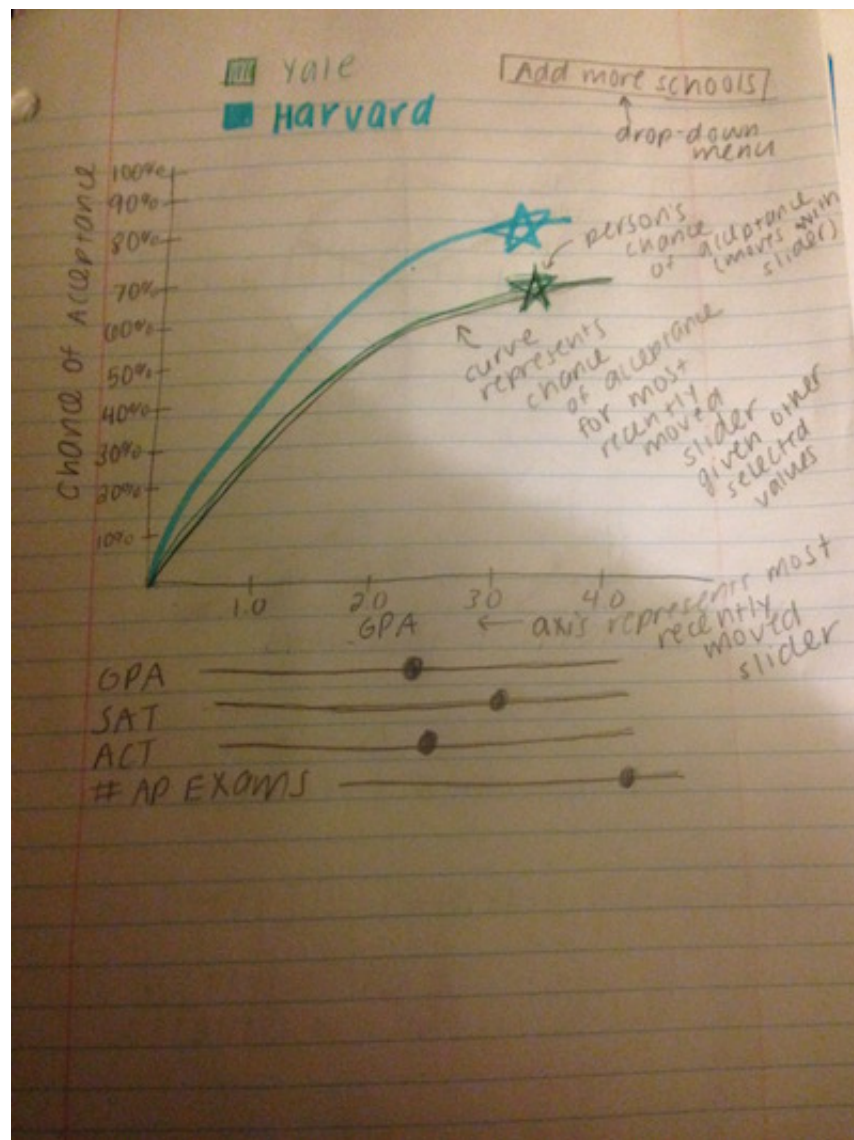 Yale
Harvard
Add more schools
drop-down
menu
Chance of Acceptance
100%
90%
80%
70%
60%
50%
40%
30%
20%
10%
person's
chance
of acceptance
(moves with
slider)
curve
represents
chance
of acceptance
for most
recently
moved
slider
given other
selected
values
1.0
2.0
3.0
4.0
GPA
axis represents most
recently
moved
slider
GPA
SAT
ACT
# AP EXAMS